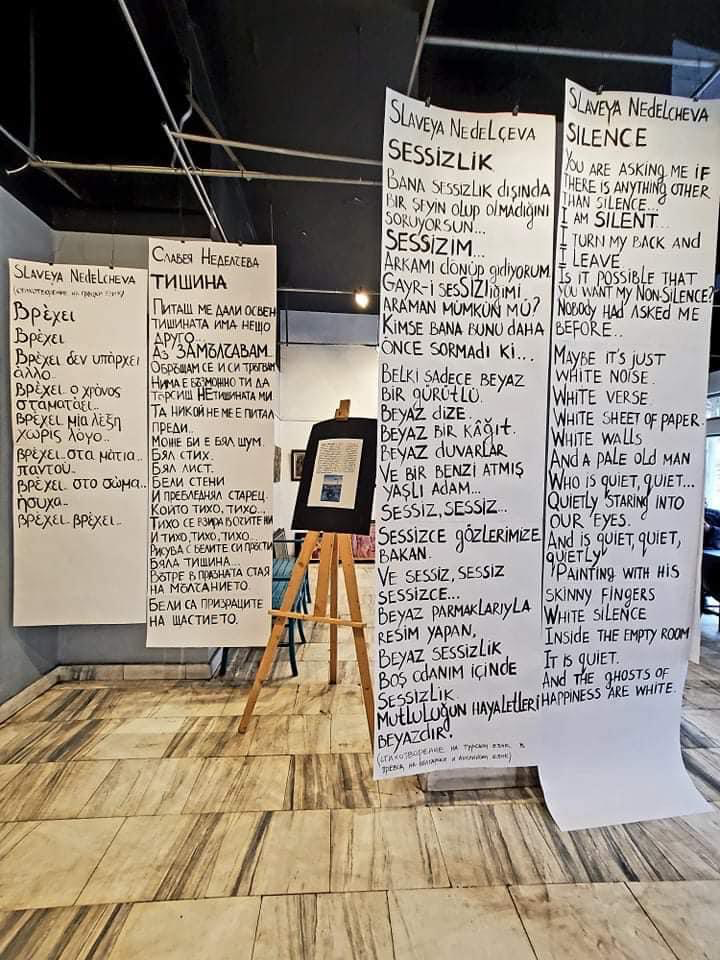 SLAVEYA NEDELCHEVA
(СТИХОТВОРЕНИЕ НА ГРЪЦКИ ЕЗИК)
Βρέχει
Βρέχει
Βρέχει δεν υπάρχει
άλλο..
βρέχει.. ο χρόνος
σταματάει..
βρέχει μία λέξη
χωρίς λόγο..
βρέχει.. στα μάτια..
παντού..
βρέχει.. στο σώμα..
ήσυχα..
βρέχει.. βρέχει..
СЛАВЕЯ НЕДЕЛЧЕВА
ТИШИНА
ПИТАШ МЕ ДАЛИ ОСВЕН
ТИШИНАТА ИМА НЕЩО
ДРУГО...
АЗ ЗАМЪЛЧАВАМ..
ОБРЪЩАМ СЕ И СИ ТРЪГВАМ
НИМА Е ВЪЗМОЖНО ТИ ДА
ТЪРСИШ НЕТИШИНАТА МИ
ТА НИКОЙ НЕ МЕ Е ПИТАЛ
ПРЕДИ..
МОЖЕ БИ Е БЯЛ ШУМ.
БЯЛ СТИХ.
БЯЛ ЛИСТ.
БЕЛИ СТЕНИ
И ПРЕБЛЕДНЯЛ СТАРЕЦ.
КОЙТО ТИХО, ТИХО..
ТИХО СЕ ВЗИРА В ОЧИТЕ НИ
И ТИХО, ТИХО, ТИХО...
РИСУВА С БЕЛИТЕ СИ ПРЪСТИ
БЯЛА ТИШИНА...
ВЪТРЕ В ПРАЗНАТА СТАЯ
НА МЪЛЧАНИЕТО.
БЕЛИ СА ПРИЗРАЦИТЕ
НА ЩАСТИЕТО.
SLAVEYA NEDELÇEVA
SESSİZLİK
BANA SESSİZLİK DIŞINDA
BİR ŞEYİN OLUP OLMADIĞINI
SORUYORSUN...
SESSİZİM...
ARKAMI DÖNÜP GİDİYORUM.
GAYR-İ SESSİZLİĞİMİ
ARAMAN MÜMKÜN MÜ?
KİMSE BANA BUNU DAHA
ÖNCE SORMADI Kİ...
BELKİ SADECE BEYAZ
BİR GÜRÜTLÜ.
BEYAZ DİZE.
BEYAZ BİR KÂĞIT.
BEYAZ DUVARLAR
VE BİR BENZİ ATMIŞ
YAŞLI ADAM...
SESSİZ, SESSİZ...
SESSİZCE GÖZLERİMİZE
BAKAN.
VE SESSİZ, SESSİZ
SESSİZCE...
BEYAZ PARMAKLARIYLA
RESİM YAPAN,
BEYAZ SESSİZLİK
BOŞ ODANIM İÇİNDE
SESSİZLİK.
MUTLULUĞUN HAYALETLERİ
BEYAZDIR!
(СТИХОТВОРЕНИЕ НА ТУРСКИ ЕЗИК В
ПРЕВОД НА БЪЛГАРСКИ И АНГЛИЙСКИ ЕЗИК)
SLAVEYA NEDELCHEVA
SILENCE
YOU ARE ASKING ME IF
THERE IS ANYTHING OTHER
THAN SILENCE...
I AM SILENT...
I TURN MY BACK AND
I LEAVE.
IS IT POSSIBLE THAT
YOU WANT MY NON-SILENCE?
NOBODY HAD ASKED ME
BEFORE...
MAYBE IT'S JUST
WHITE NOISE.
WHITE VERSE.
WHITE SHEET OF PAPER.
WHITE WALLS
AND A PALE OLD MAN
WHO IS QUIET, QUIET...
QUIETLY STARING INTO
OUR EYES.
AND IS QUIET, QUIET,
QUIETLY
PAINTING WITH HIS
SKINNY FINGERS
WHITE SILENCE
INSIDE THE EMPTY ROOM
IT IS QUIET.
AND THE GHOSTS OF
HAPPINESS ARE WHITE.